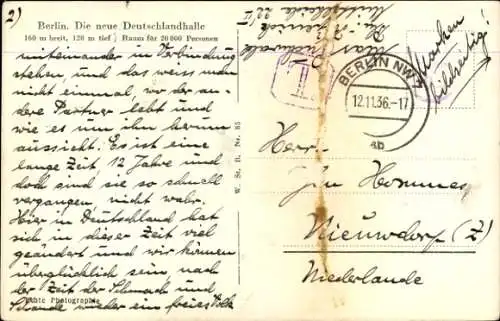 2)
Berlin. Die neue Deutschlandhalle
160 m breit, 120 m tief, Raum für 20 000 Personen
miteinander in Verbindung
stehen, und das weiss man
nicht einmal, wo der an-
dere Partner lebt und
wie es um ihn herum
aussieht. Es ist eine
lange Zeit, 12 Jahre und
doch sind sie so schnell
vergangen, nicht wahr.
Hier in Deutschland hat
sich in dieser Zeit viel
geändert und wir können
überglücklich sein, nach
der Zeit der Schmach und
Schande wieder ein freies Volk
Echte Photographie
W. St. B. Nr. 85
T
BERLIN NW
12.11.36.-17
ab
Marken
bildseitig!
Herr
Jan Hommes
Nieuwdorf (Z)
Niederlande